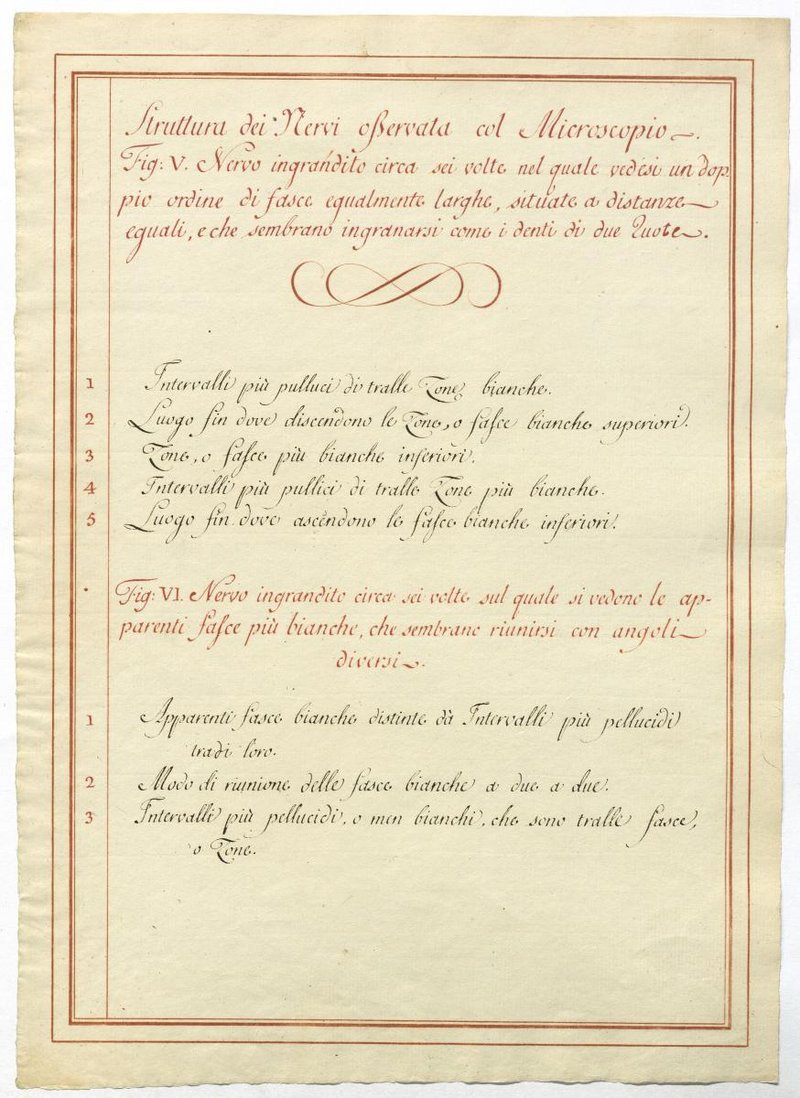 Struttura dei Nervi osservata col Microscopio.
Fig: V. Nervo ingrandito circa sei volte nel quale vedesi un dop
pio ordine di fasce egualmente larghe, situate a distanze
eguali, e che sembrano ingranarsi come i denti di due Ruote.
1 Intervalli più pulluci di tralle Zone bianche.
2 Luogo fin dove discendono le Zone, o fasce bianche superiori.
3 Zone, o fasce più bianche inferiori.
4 Intervalli più pullici di tralle Zone più bianche.
5 Luogo fin dove ascendono le fasce bianche inferiori.
Fig: VI. Nervo ingrandito circa sei volte sul quale si vedono le ap-
parenti fasce più bianche, che sembrano riunirsi con angoli
diversi.
1 Apparenti fasce bianche distinte dà Intervalli più pellucidi
tradi loro.
2 Modo di riunione delle fasce bianche a due a due.
3 Intervalli più pellucidi, o men bianchi, che sono tralle fasce,
o Zone.